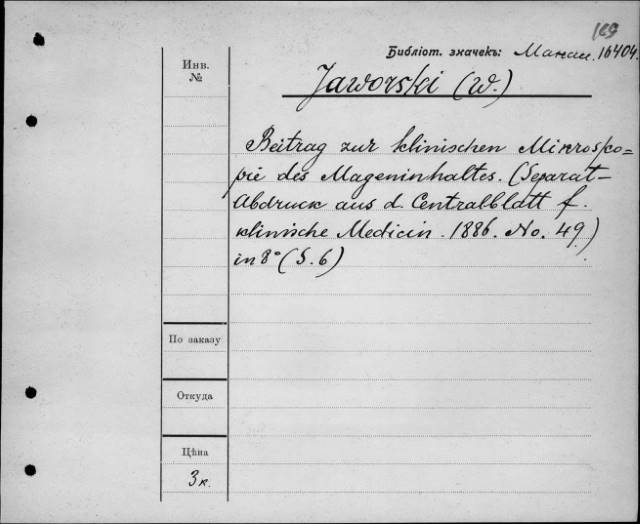 Библіот. значекъ: Манас. 16404.
Инв.
№
Jaworski (W.)
Beitrag zur klinischen Mikrosko=
pie des Mageninhaltes. (Separat-
Abdruck aus d. Centralblatt f.
klinische Medicin. 1886. No. 49)
in 8° (S. 6)
По заказу
Откуда
Цѣна
3 к.